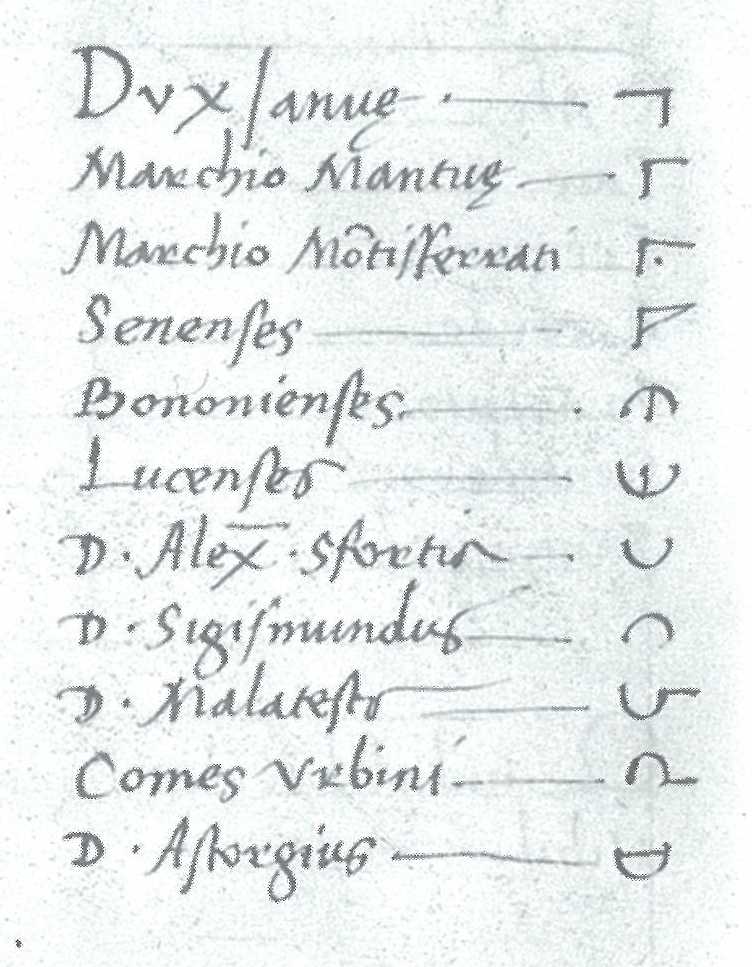 Dux Januę
Marchio Mantuę
Marchio Mōtisferrati
Senenses
Bononienses
Lucenses
D. Alex̄. Sfortia
D. Sigismundus
D. Malatesta
Comes Urbini
D. Astorgius